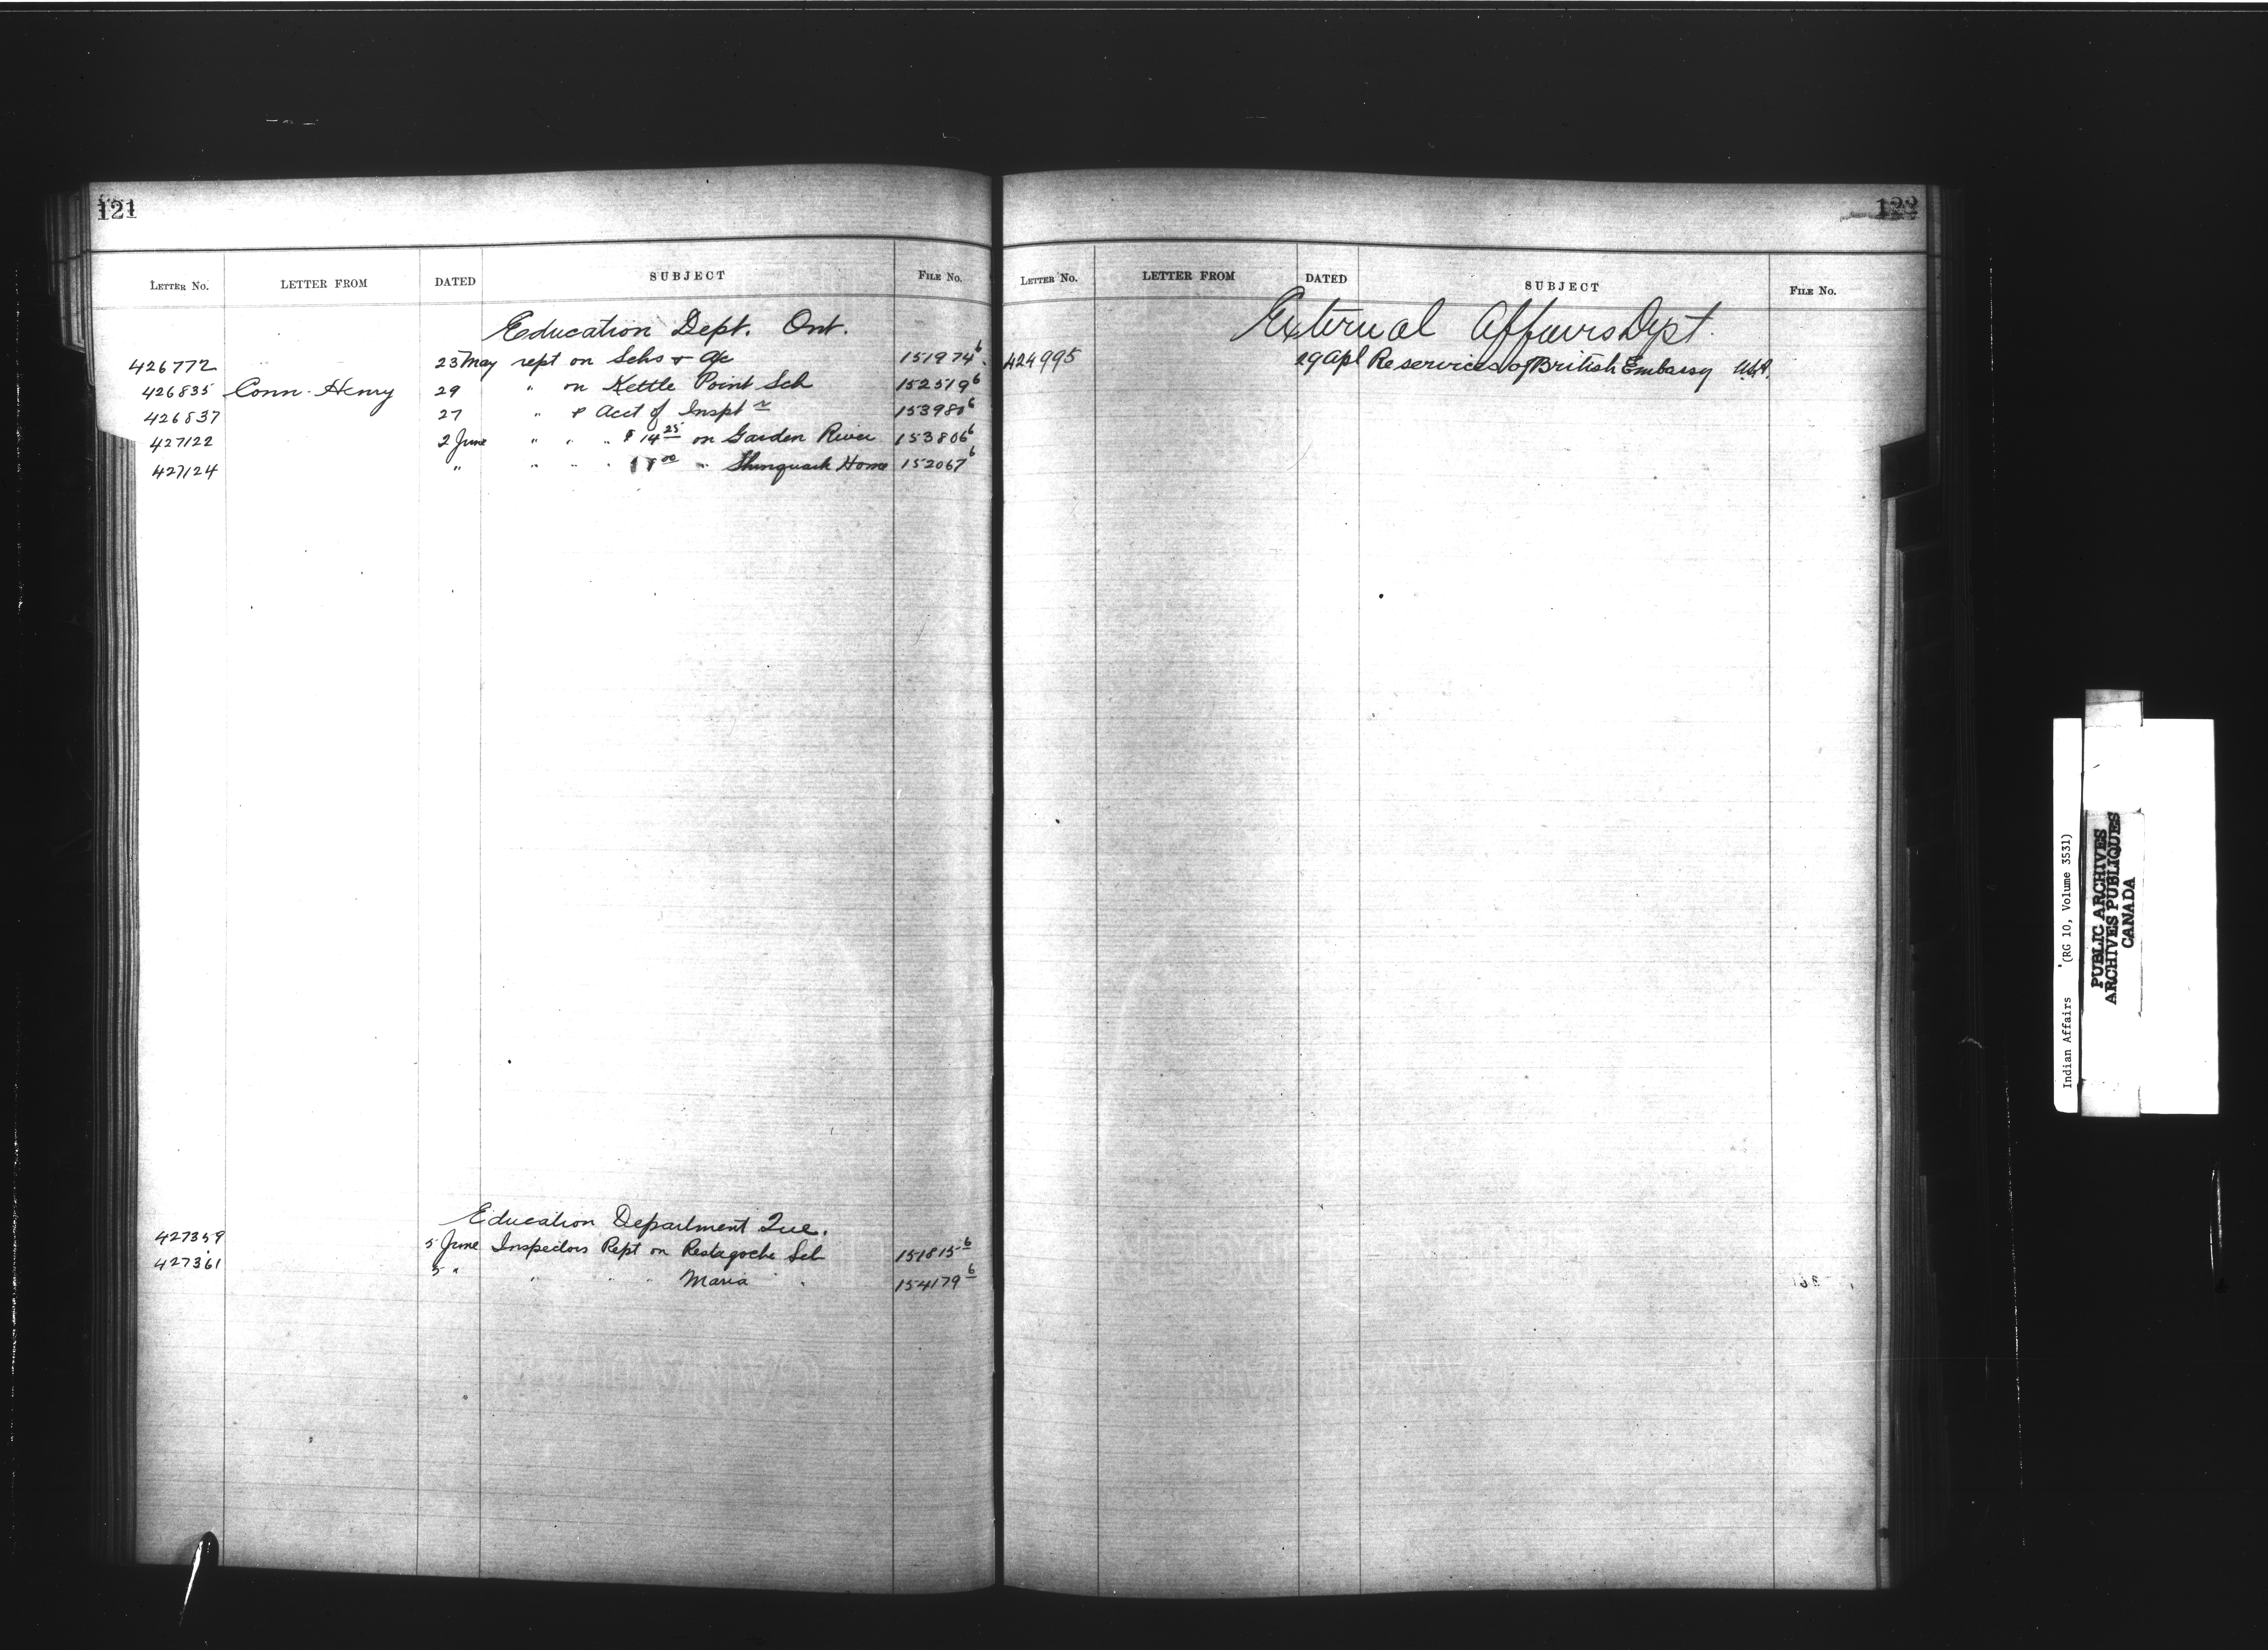 121
LETTER NO. LETTER FROM DATED SUBJECT FILE NO.
Education Dept. Ont.
426772 23 May rept on Schs & a/c 151974⁶
426835 Conn. Henry 29 " on Kettle Point Sch 152519⁶
426837 27 " & Acct of Inspt ʳ 153980⁶
427122 2 June " " " $14²⁵ on Garden River 153806⁶
427124 " " " " " Shinguack Home 152067⁶
Education Department Que.
427359 5 June Inspectors Rept on Restagoche Sch 151815⁶
427361 5 " " " " Maria " 154179⁶
122
LETTER NO. LETTER FROM DATED SUBJECT FILE NO.
External Affairs Dept.
424995 29 Apl Re services of British Embassy U.S.A.
Indian Affairs (RG 10, Volume 3531)
PUBLIC ARCHIVES
ARCHIVES PUBLIQUES
CANADA